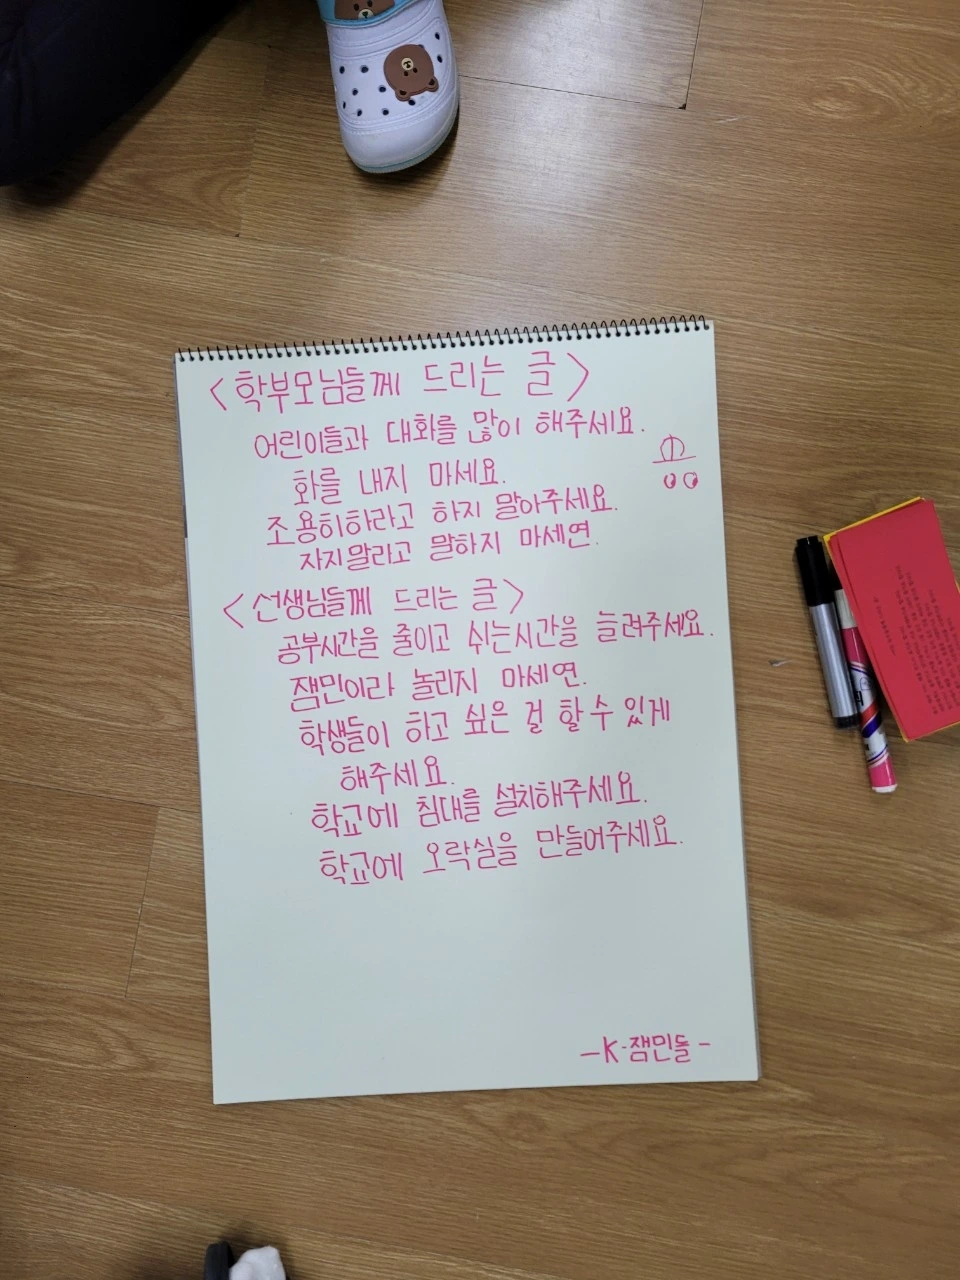 <학부모님들께 드리는 글>
어린이들과 대화를 많이 해주세요.
화를 내지 마세요.
조용히하라고 하지 말아주세요.
자지말라고 말하지 마세연.
<선생님들께 드리는 글>
공부시간을 줄이고 쉬는시간을 늘려주세요.
잼민이라 놀리지 마세연.
학생들이 하고 싶은 걸 할 수 있게
해주세요.
학교에 침대를 설치해주세요.
학교에 오락실을 만들어주세요.
-K-잼민들-